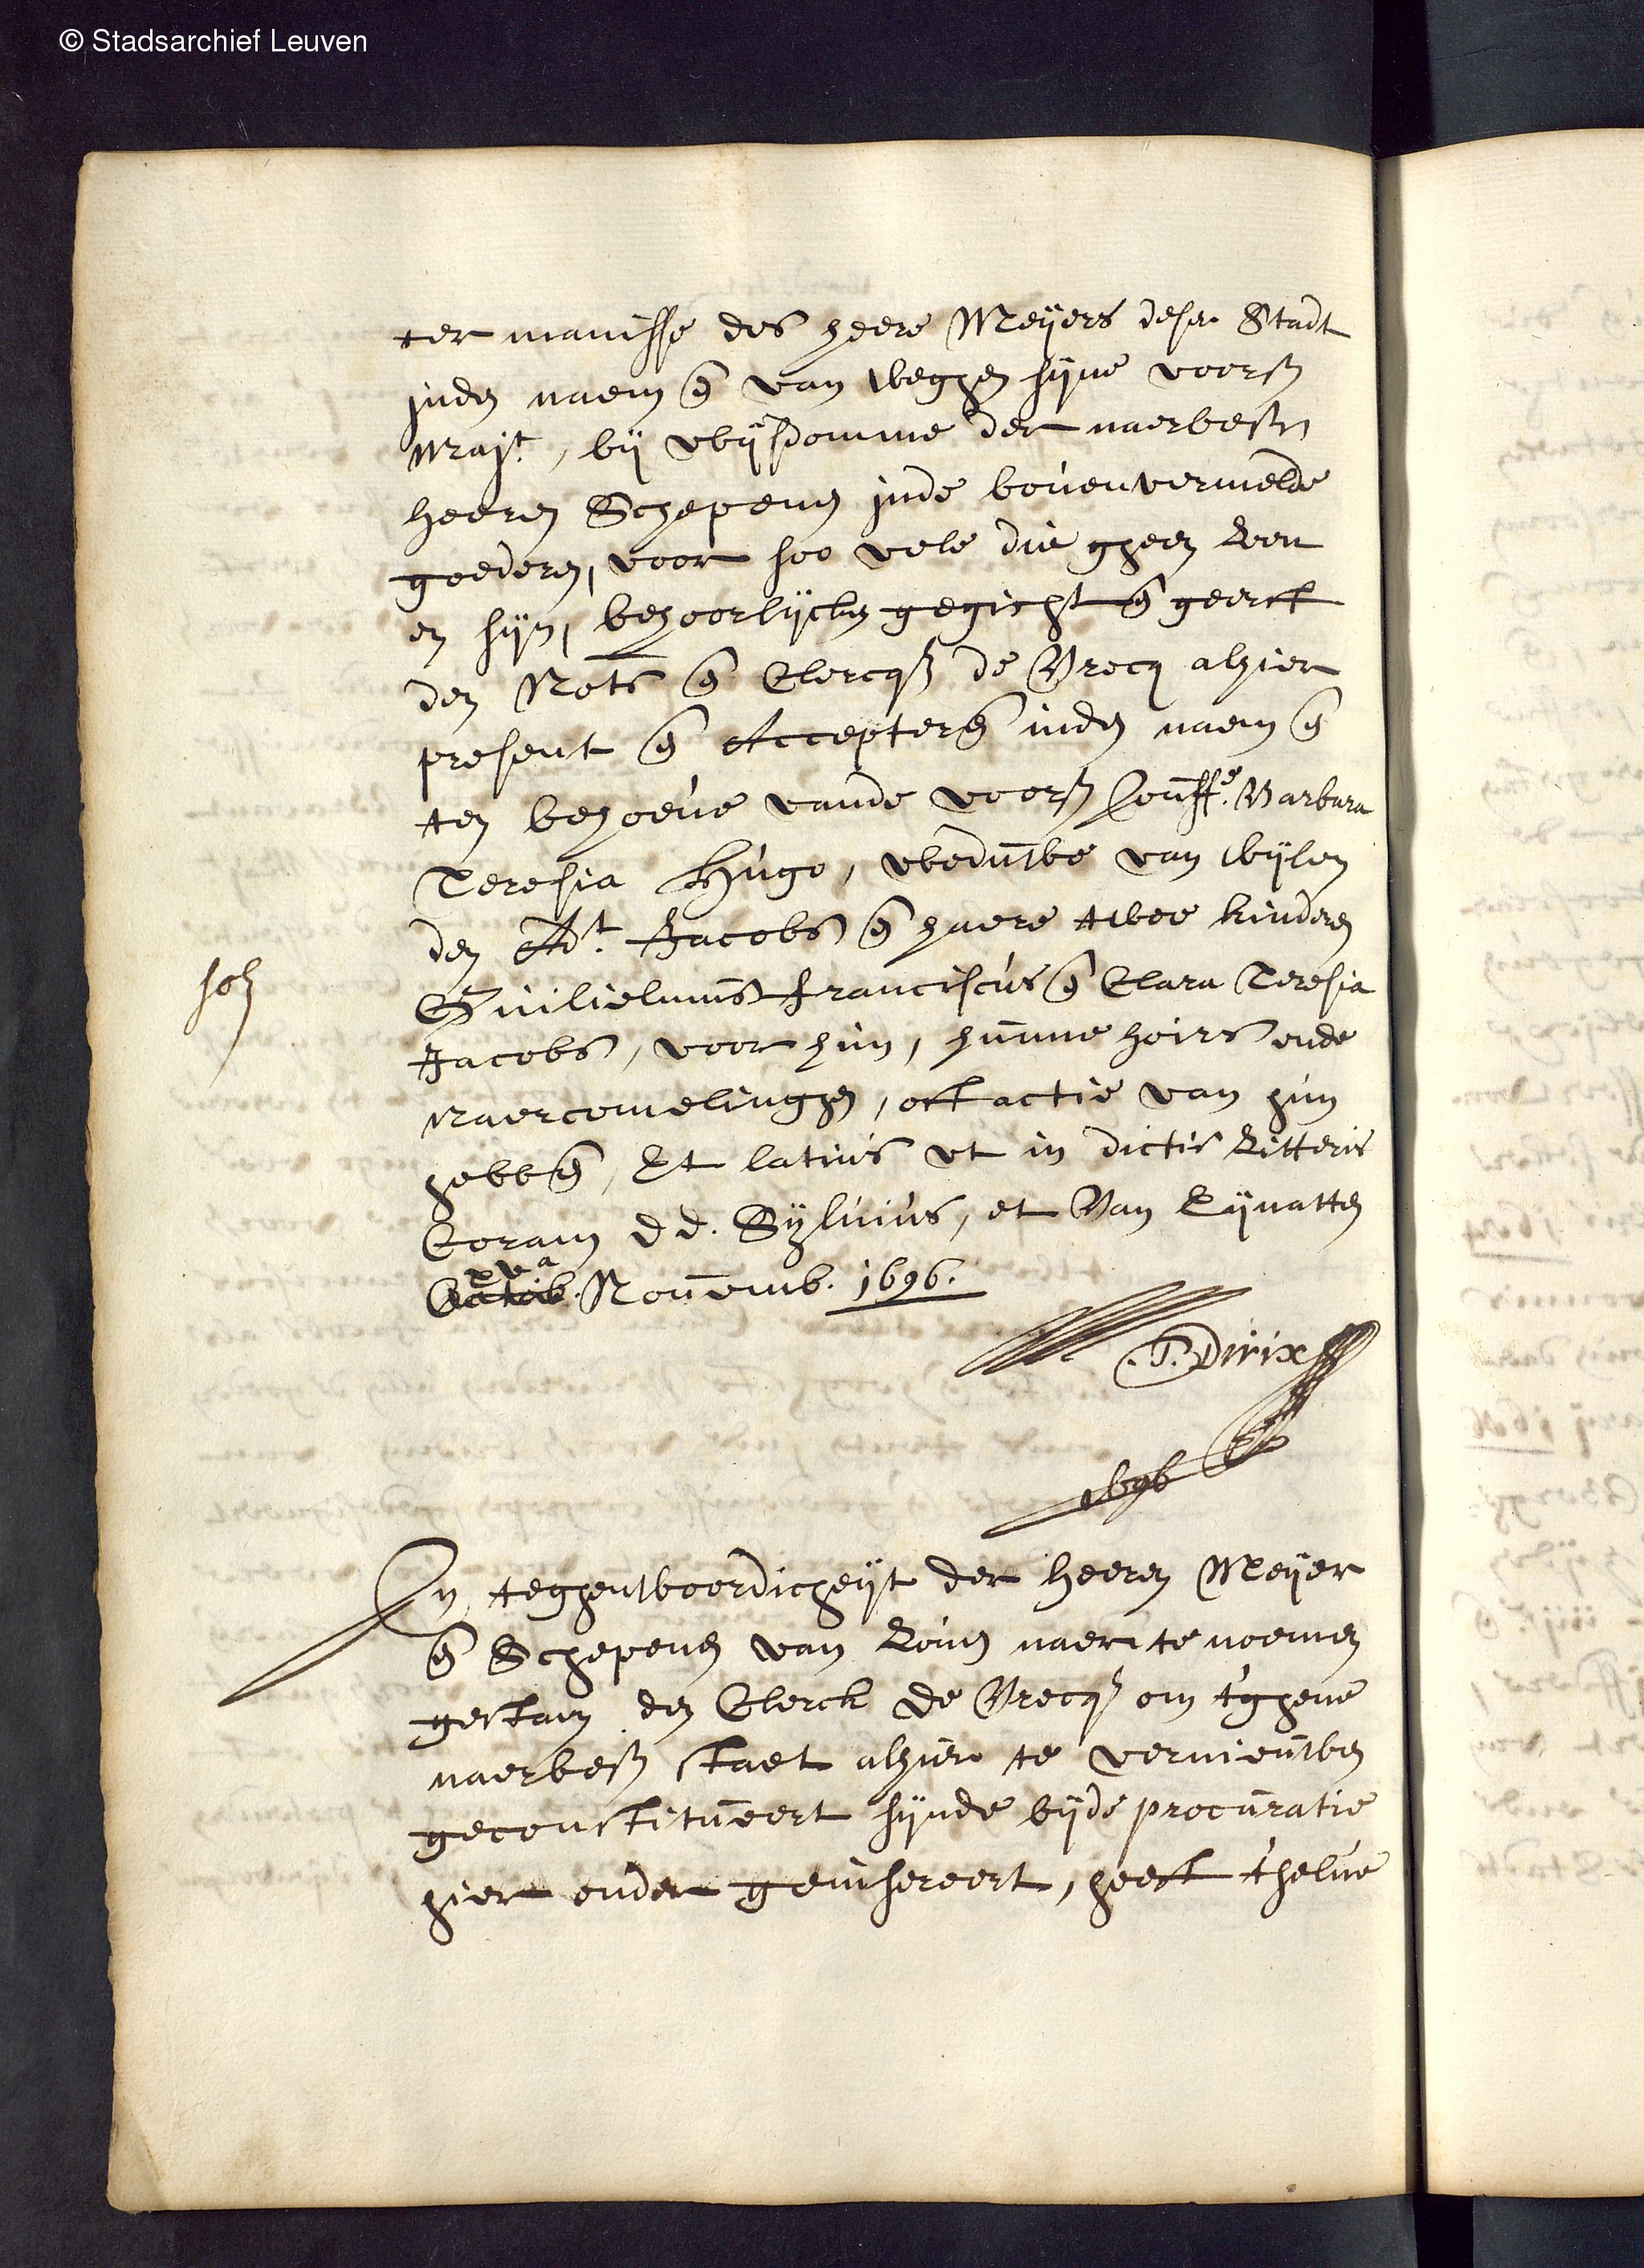 © Stadsarchief Leuven
ter manisse des heere Meijers deser Stadt
inden naem en van weghen sijne voors
Majt, bij wijsdomme der naerbesc
heeren Schepenen inde bovenvermelde
goederen, voor soo vele die gheen Leen
en sijn, behoorlijcken gegicht en geerft
den Nots en Clercq de Brecq alhier
present en Accepteren inden naem en
ten behoeve vande voors Jouffe. Barbara
Teresia Hugo, weduwe van wijlen
den Adt. Jacobs en haere twee kinderen
solt
Guilielmus Franciscus en Clara Teresia
Jacobs, voor hun, hunne hoirs ende
Naercomelinghen, oft actie van hun
hebben, Et latius ut in dictis Litteris
Coram dd. Sylvius, et Van Eijnatten
Novemb. 1696.
T. Dirix
1696
In teghenwoordicheijt der heeren Meijer
en Schepenen van Loven naer te noemen
gestaen den Clerck de Brecq om t'ghene
naerbes staet alhier te vernieuwen
geconstitueert sijnde bijde procuratie
hier onder geinsereert, heeft t'selve